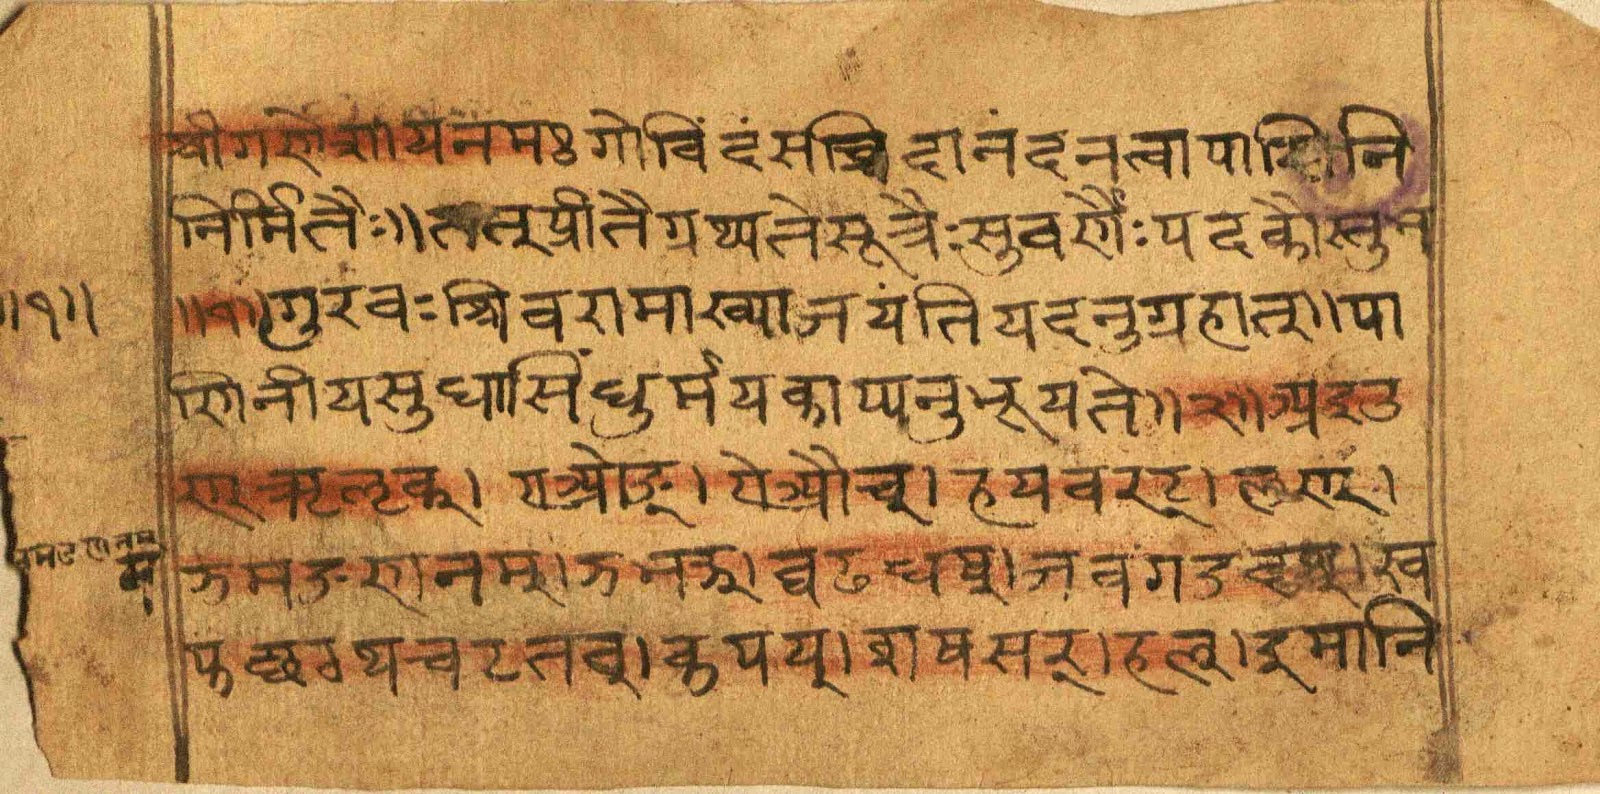 श्रीगणेशायनमः गोविंदंसच्चिदानंदनत्वापाणिनि
निर्मितैः॥तत्प्रीतैग्रथ्यतेसूत्रैःसुवर्णैःपदकौस्तुभ
॥१॥गुरवःश्रिवरामाख्याजयंतियदनुग्रहात्॥पा
॥१॥
णिनीयसुधासिंधुर्मयकाप्यनुभूयते॥२॥अइउ
ण्ऋऌक्। एओङ्। ऐऔच्। हयवरट्। लण्।
ञमङणनम्।झभञ्।घढधष्।जबगडदश्।ख
फछठथचटतव्।कपय्।शषसर्।हल्।इमानि